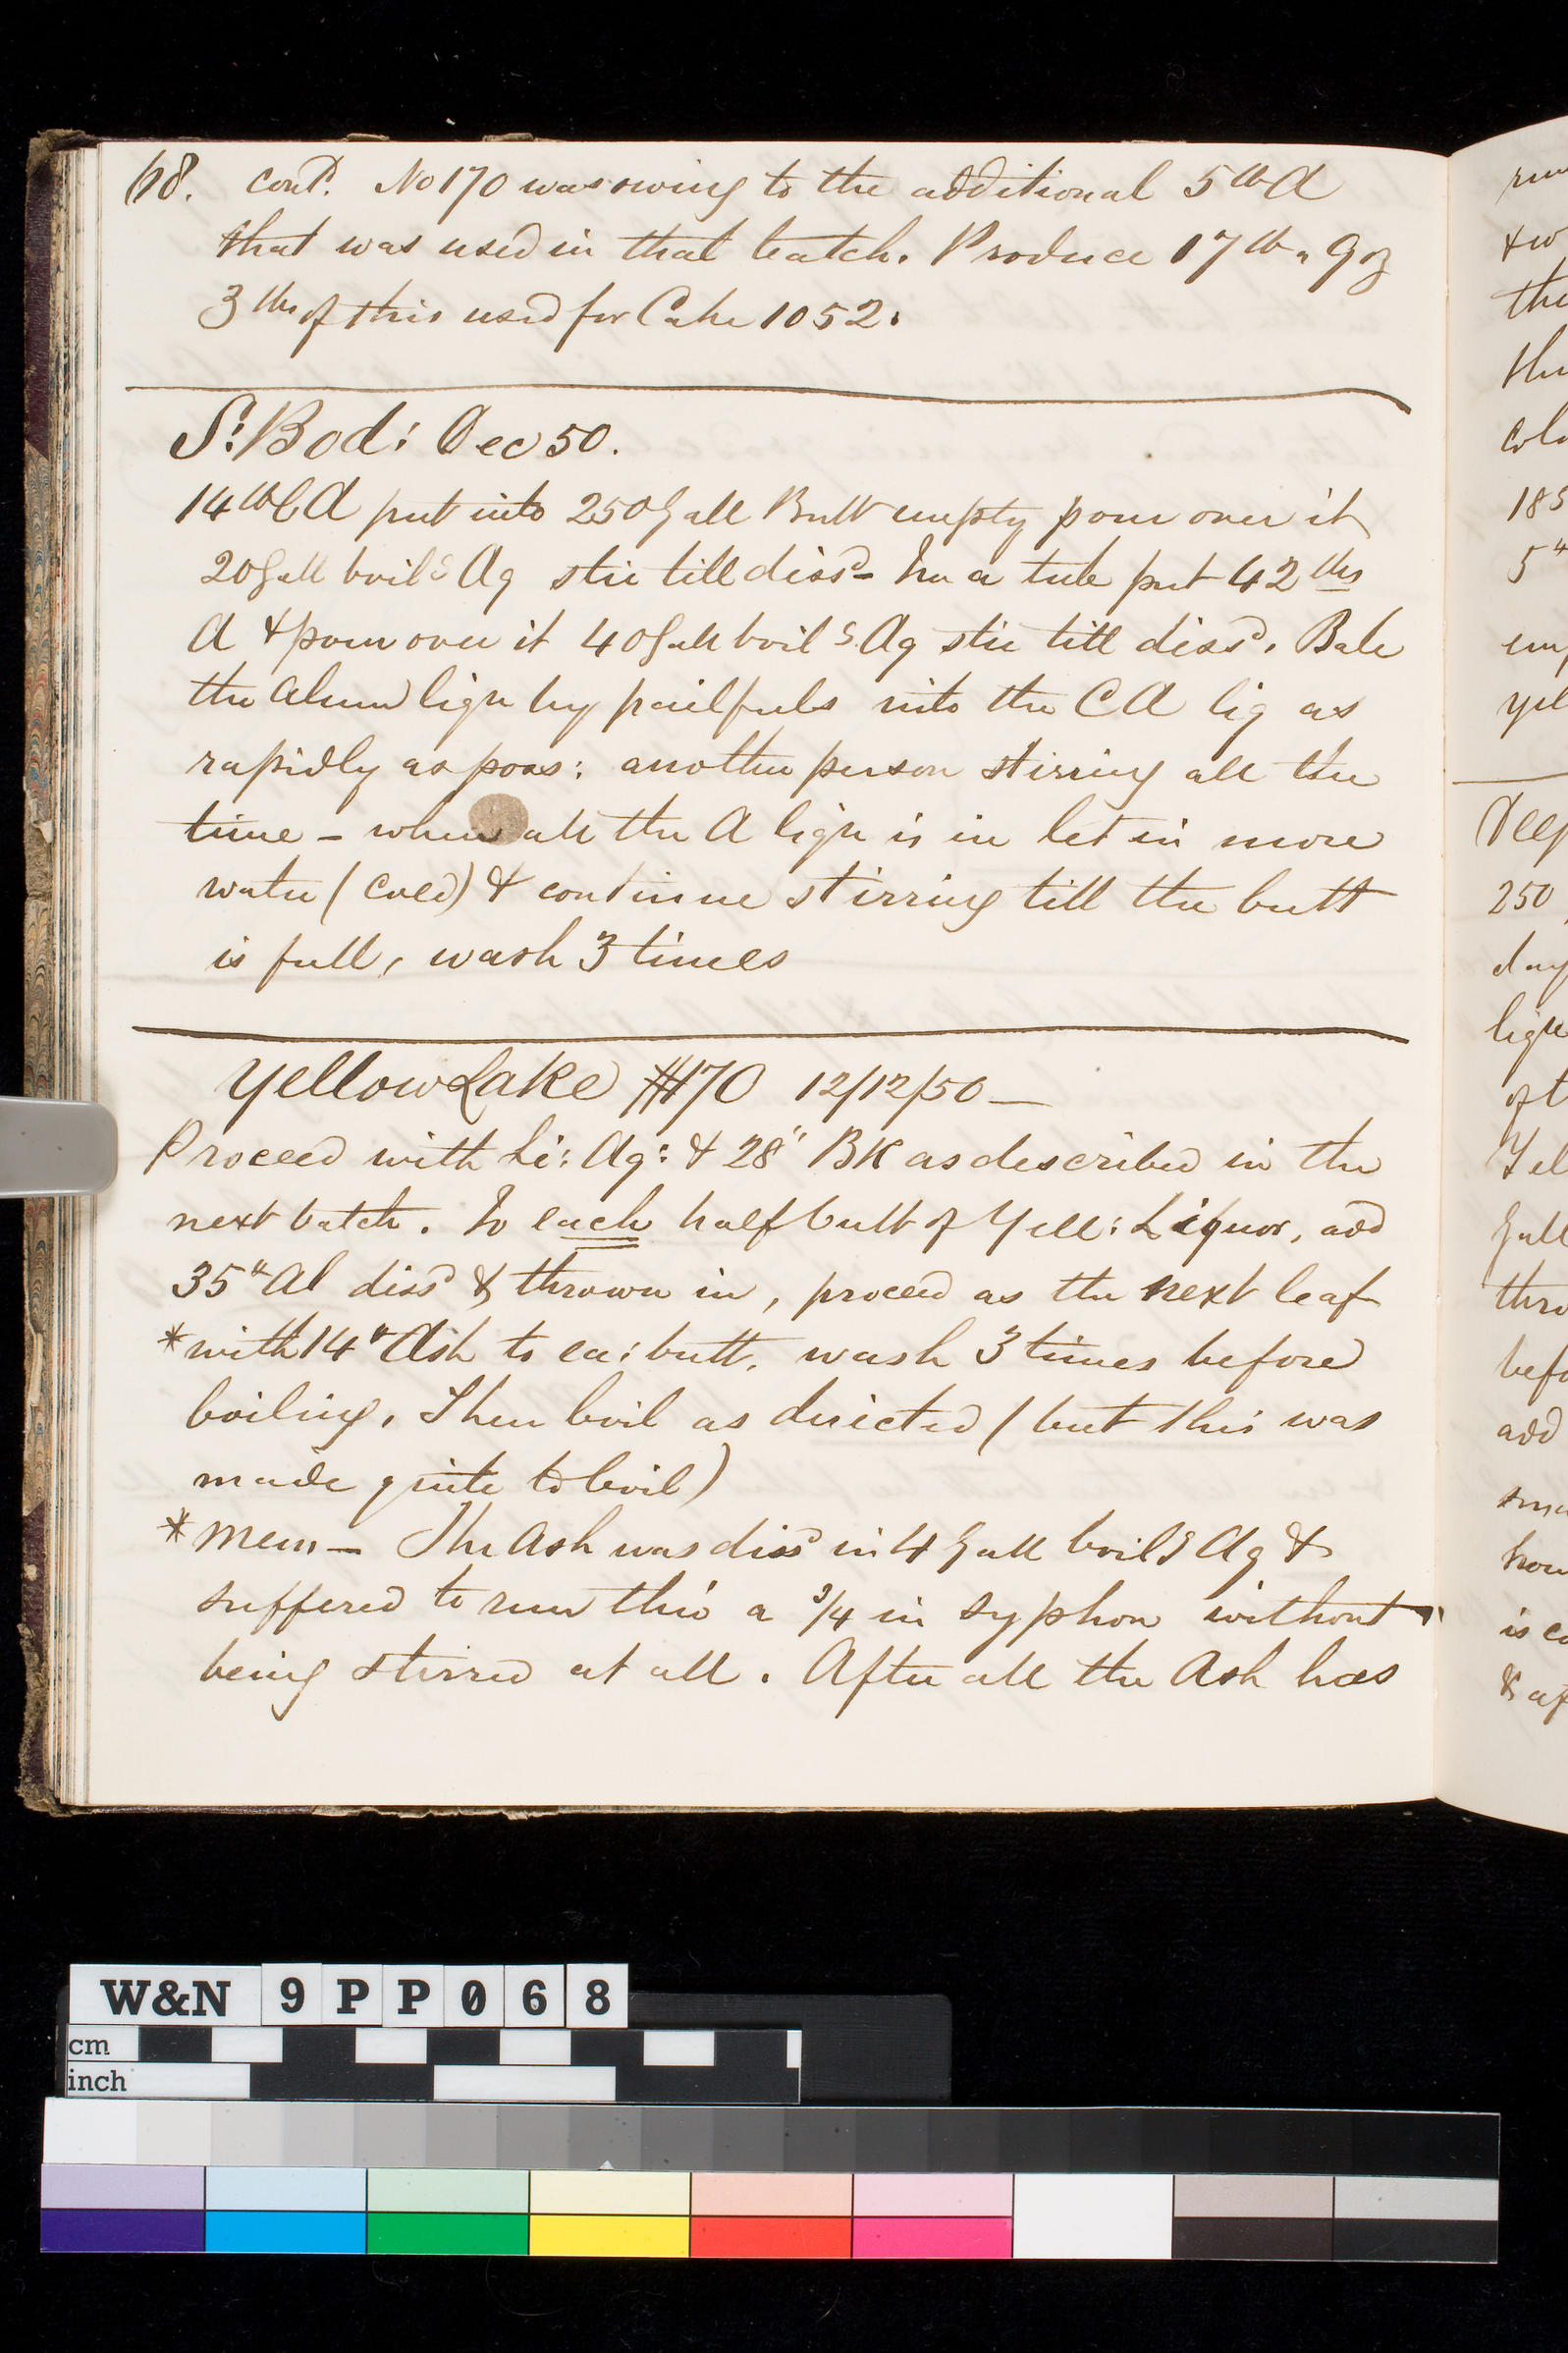 68. Cont.d No 170 was owing to the additional 5 lb A
that was used in that batch. Produce 17 lb " 9 oz
3 lbs of this used for Cake 1052.
S: Bod: Dec 50.
14 lb C A put into 250 Gall Butt empty pour over it
20 Gall boilg Aq stir till dissd - In a tub put 42 lbs
A & pour over it 40 Gall boilg Aq stir till dissd. Bale
the Alum liqr by pailfuls into the C A liq as
rapidly as poss: another person stirring all the
time - when all the A liqr is in let in more
water (cold) & continue stirring till the butt
is full, wash 3 times
Yellow Lake #170 12/12/50 —
Proceed with Li: Aq: & 28" BK as described in the
next batch. To each half butt of Yell: Liquor, add
35" Al dissd & thrown in, proceed as the next leaf
*with 14" Ash to ea: butt, wash 3 times before
boiling. Then boil as directed (but this was
made quite to boil)
*Mem — The Ash was dissd in 4 Gall boilg Aq &
suffered to run thro' a 3/4 in syphon without
being stirred at all. After all the Ash has
run
& w
the
the
cold
185
5"
emp
yel
Deep
250
day
liqu
of t
Yel
Gall
thro
befo
add
sma
hou
is co
& af
W&N 9PP068
cm
inch